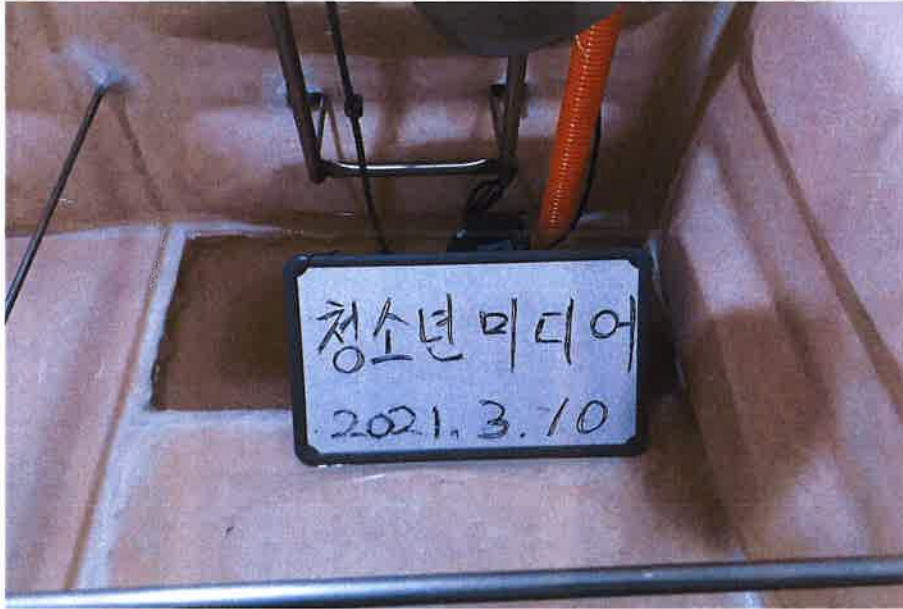 청소년미디어
2021. 3. 10